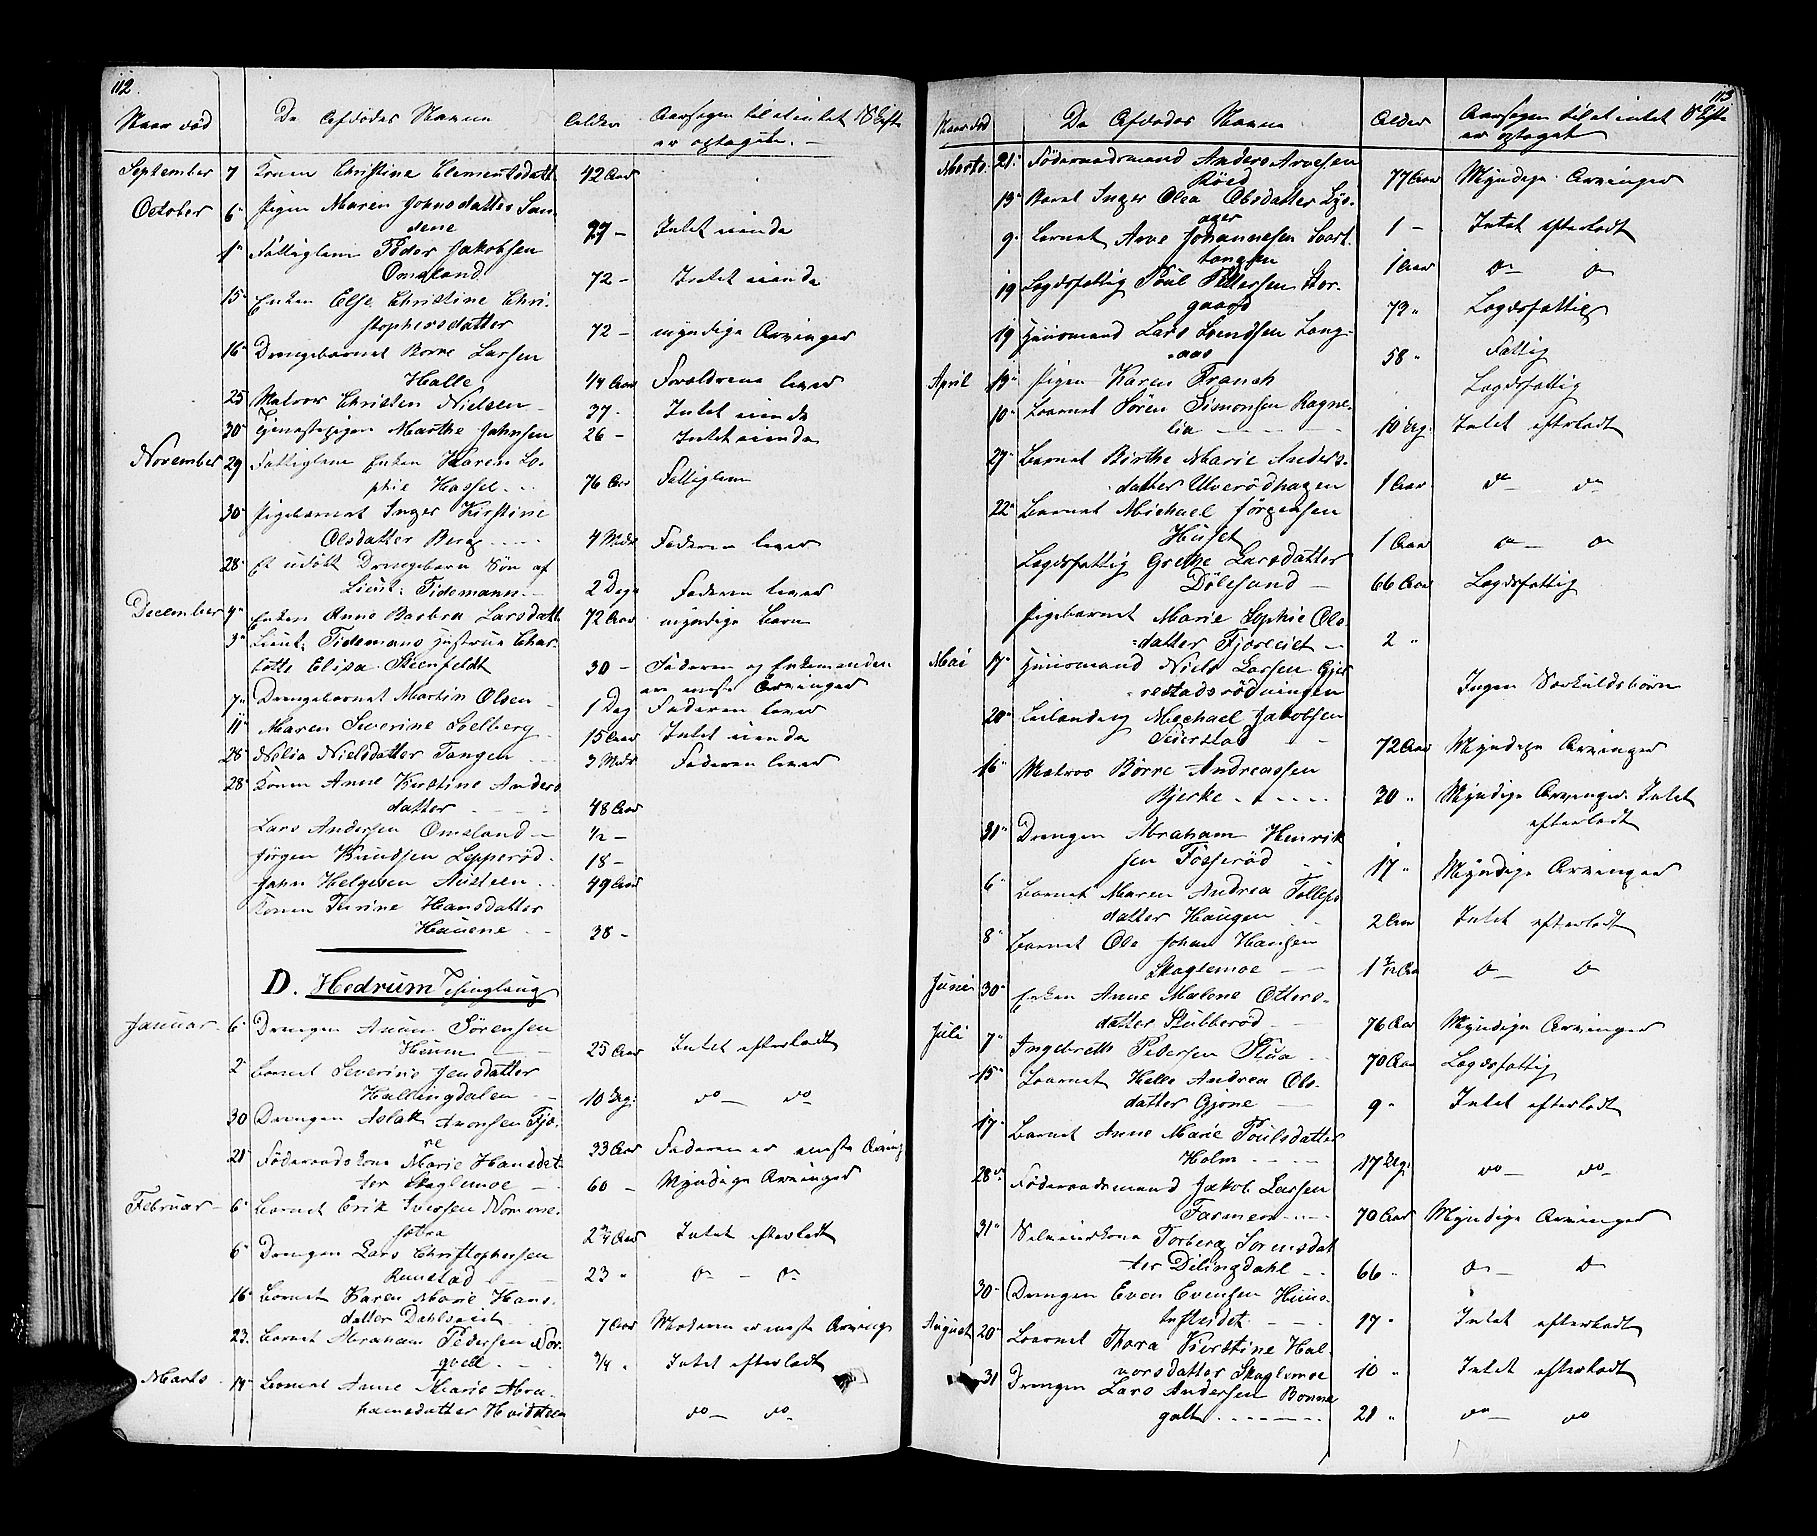 112.
Naar död De Afdödes Navne Alder Aarsagen til at intet Skifte
er optaget. –
September 7 Konen Christine Clementsdatt. 42 Aar
October 6 Pigen Maren Johnsdatter San-
dene 27 – Intet eiende
1 Fattiglem Peder Jakobsen
Omsland 72 – Intet eiende
15 Enken Else Christine Chri-
stophersdatter 72 – myndige Arvinger
16 Drengebarnet Borre Larsen
Halle 1/4 Aar Forældrene lever
25 Matros Christen Nielsen 37 – Intet eiende
30 Tjenestepigen Marthe Johnsen 26 – Intet eiende
November 29 Fattiglem Enken Karen So-
phie Hassel 76 Aar Fattiglem
30 Pigebarnet Inger Kirstine
Olsdatter Berg 4 Mdr Faderen lever
28 Et udöbt Drengebarn Sön af
Lieut: Tidemann 2 Dage Faderen lever
December 4 Enken Anne Barbra Larsdatt. 72 Aar myndige Börn
3 Lieut: Tidemans Hustrue Char-
lotte Elisa Steenfeldt 30 – Faderen og Enkemanden
er eneste Arvinger
7 Drengebarnet Martin Olsen 1 Dag Faderen lever
11 Maren Severine Solberg 15 Aar Intet eiende
28 Nilia Nielsdatter Tangen 3 Mdr Faderen lever
28 Konen Anne Kirstine Anders
datter 48 Aar
Lars Andersen Omsland 1/2 –
Jörgen Knudsen Lepperöd 18 –
John Helgesen Austeen 49 Aar
Konen Turine Hansdatter
Hauene 38 –
D. Hedrum Thinglaug
Januar 6 Drengen Anun Sörensen
Heum 25 Aar Intet efterladt
2 Barnet Severine Jensdatter
Hallingdalen 10 Dg: do – do
30 Drengen Aslak Aronsen Tjö-
re 33 Aar Faderen er eneste Arving
21 Föderaadskone Marie Hansdat
ter Skaglemoe 60 – Myndige Arvinger
Februar 6 Barnet Erik Iversen Nomme-
2 3/4 Aar Intet efterladt
6 Drengen Lars Christophersen
Rimstad 23 " do – do
16 Barnet Karen Marie Hans-
datter Dahlseiet 7 Aar Moderen er eneste Arving
23 Barnet Abraham Pedersen Nor-
qvelle 3/4 " Intet efterladt
Marts 14 Barnet Anne Marie Abra-
hamsdatter Hvidsteen do – do
113
Naar död De Afdödes Navne Alder Aarsagen til at intet Skifte
er optaget
Marts 21 Föderaadsmand Anders Arvesen
Röed 77 Aar Myndige Arvinger
13 Barnet Inger Olea Olsdatter Lys-
ager 1 – Intet efterladt
9 Barnet Arve Johannesen Svart-
tangen 1 Aar do do
19 Lægdsfattig Poul Pettersen Stor-
gaard 73 " Lægdsfattig
19 Huusmand Lars Svendsen Lang-
aas 58 " Fattig
April 13 Pigen Karen Franck Lægdsfattig
10 Barnet Sören Simonsen Ragne-
lia 10 Dg. Intet efterladt
27 Barnet Birthe Marie Anders-
datter Ulverödhagen 1 Aar do do
22 Barnet Michael Jörgensen
Huset 1 Aar do – do
Lægdsfattig Grethe Larsdatter
Dölesand – 66 Aar Lægdsfattig
Pigebarnet Marie Sophie Ols-
datter Fjæreeiet 2 "
Mai 17 Huusmand Niels Larsen Gjer
restadsrödningen Ingen Særkuldsbörn
20 Leilænding Michael Jakobsen
72 Aar Myndige Arvinger
16 Matros Börre Andreassen
Bjerke 30 " Myndige Arvinger. Intet
efterladt
31 Drengen Abraham Henrik
sen Fosseröd 17 " Myndige Arvinger
6 Barnet Maren Andrea Tollefs
datter Haugen 2 Aar Intet efterladt
8 Barnet Ole Johan Hansen
Skaglemoe 1 Aar do do
Juni 30 Enken Anne Malene Otters-
datter Stubberöd 76 Aar Myndige Arvinger
Juli 7 Ingebreth Pedersen Stua 70 Aar Lægdsfattig
15 Barnet Helle Andrea Ols-
datter Gjone 9 " Intet efterladt
17 Barnet Anne Marie Poulsdatter
Holm 17 Dg: do – do
28 Föderaadsmand Jakob Larsen
Farmen 70 Aar Myndige Arvinger
31 Selveierkone Torberg Sörensdat
ter Dilingdahl 66 " do – do
30 Drengen Even Evensen Huus-
17 " Intet efterladt
August 20 Barnet Thora Kirstine Hal-
vorsdatter Skaglemoe 10 " Intet efterladt
31 Drengen Lars Andersen Bonne
galt 21 " do – do